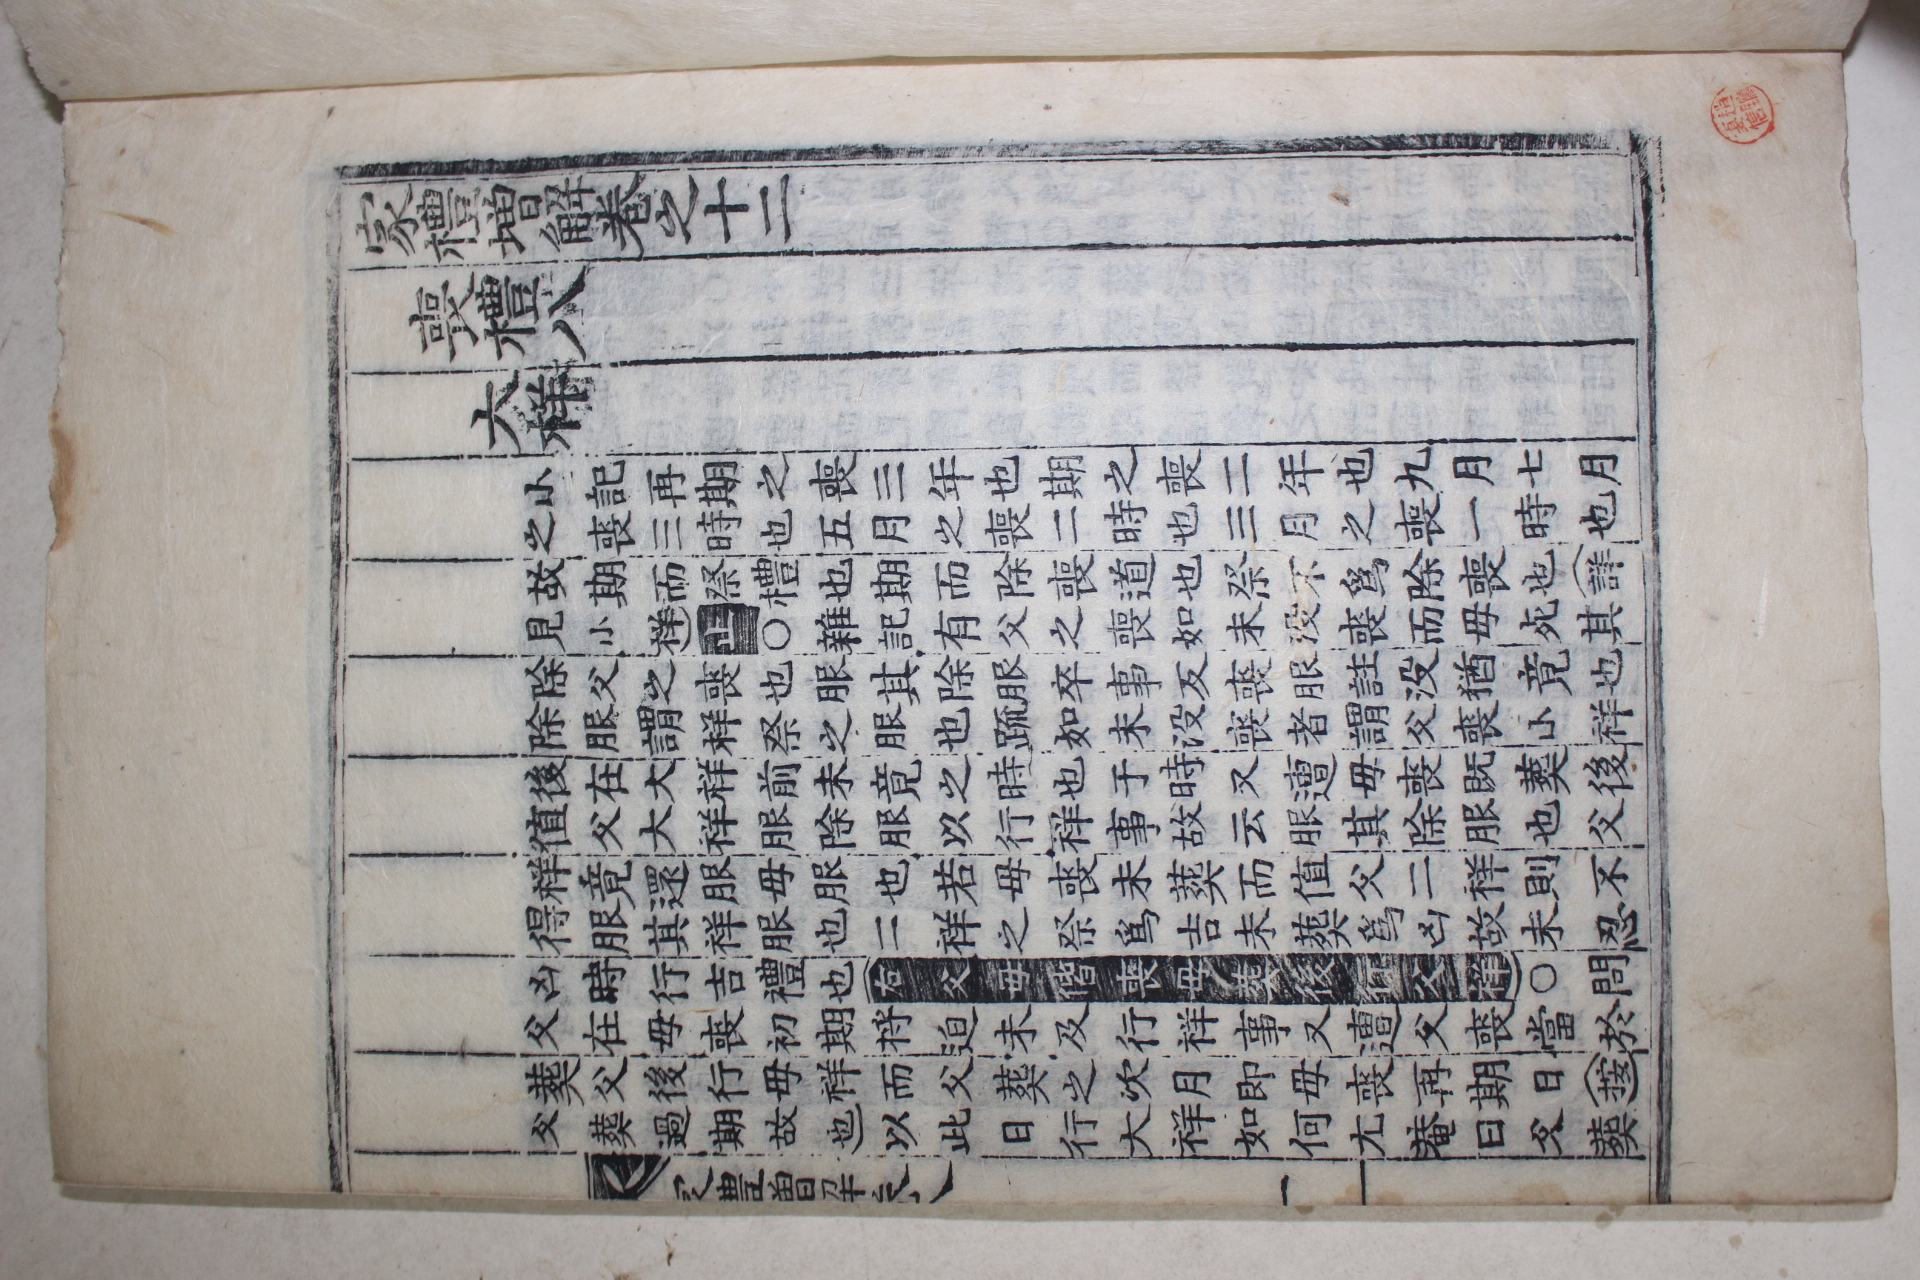 家禮增解卷之十二
喪禮八
大祥
小記再期之喪三年也期之喪二年也九月七月
之喪三時也五月之喪二時也三月之喪一時也
故期而祭禮也期而除喪道也祭不爲除喪也(詳
見小祥)正○雜記有父之喪如未没喪而母死其
除父之喪也服其除服卒事反喪服註没猶竟也
除服謂祥祭之服也疏如未没喪者謂父喪小祥
後在大祥前未竟之時也于時又遭母喪既葬後
値父大祥服除服以行祥事故云服其除服也父
祥竟還服母服也若母喪未葬而值父二祥則不
得服其祥服也二祥之祭爲吉未葬爲凶故未忍
凶時行吉禮也(右父母偕喪母葬後行父祥)○問
父在母喪初期將迫未及行祥事又遭父喪當於
葬父後行母祥而父葬之次月即母喪再期日(按
父葬過期故也以此日行大祥如何尤菴曰父葬
家禮增解卷八
一